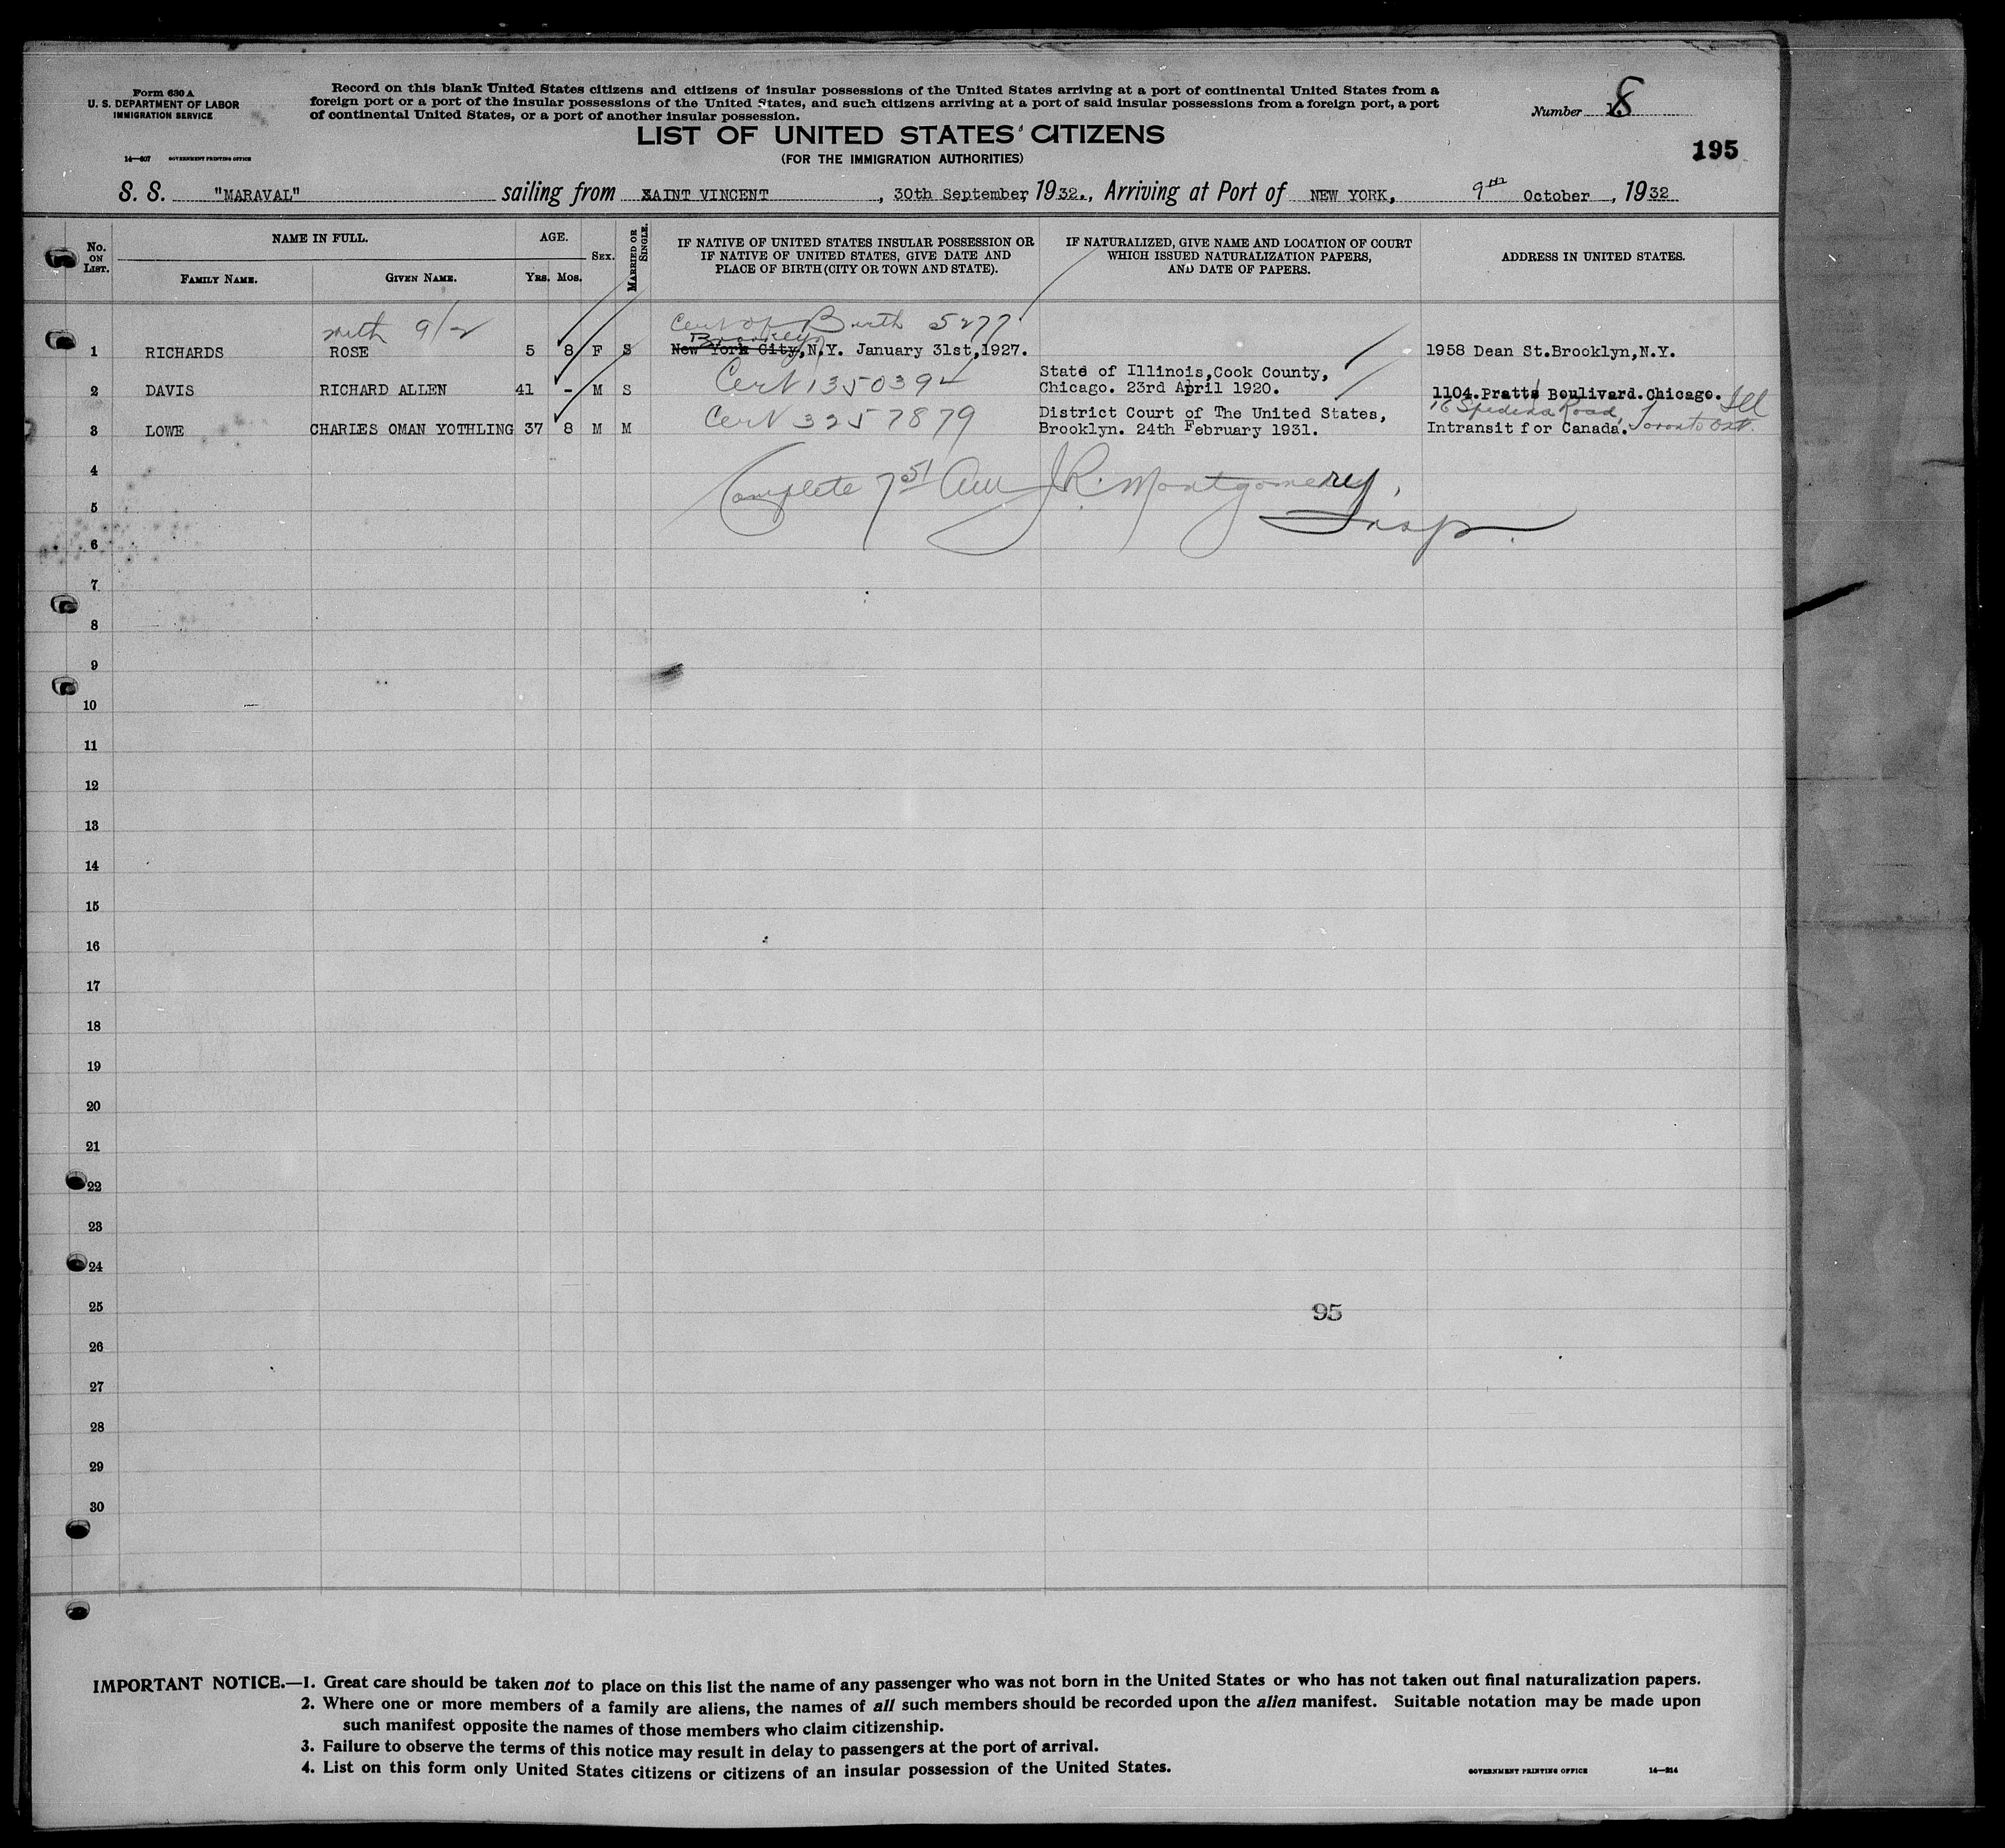 Form 630 A
U. S. DEPARTMENT OF LABOR
IMMIGRATION SERVICE
14—607 GOVERNMENT PRINTING OFFICE
Record on this blank United States citizens and citizens of insular possessions of the United States arriving at a port of continental United States from a
foreign port or a port of the insular possessions of the United States, and such citizens arriving at a port of said insular possessions from a foreign port, a port
of continental United States, or a port of another insular possession.
Number 8
195
LIST OF UNITED STATES CITIZENS
(FOR THE IMMIGRATION AUTHORITIES)
S. S. "MARAVAL" sailing from SAINT VINCENT, 30th September, 1932., Arriving at Port of NEW YORK, 9th October, 1932
No. ON LIST.
NAME IN FULL.
FAMILY NAME. GIVEN NAME.
AGE.
Yrs. Mos.
SEX.
MARRIED OR SINGLE.
IF NATIVE OF UNITED STATES INSULAR POSSESSION OR
IF NATIVE OF UNITED STATES, GIVE DATE AND
PLACE OF BIRTH (CITY OR TOWN AND STATE).
IF NATURALIZED, GIVE NAME AND LOCATION OF COURT
WHICH ISSUED NATURALIZATION PAPERS,
AND DATE OF PAPERS.
ADDRESS IN UNITED STATES.
with 9/2 Cert of Birth 5277
Brooklyn
1 RICHARDS ROSE 5 8 F S New York City, N.Y. January 31st, 1927. 1958 Dean St.Brooklyn,N.Y.
Cert 1350394 State of Illinois,Cook County,
2 DAVIS RICHARD ALLEN 41 - M S Chicago. 23rd April 1920. 1104.Pratts Boulivard.Chicago. Ill
Cert 3257879 District Court of The United States, 16 Spedena Road,
3 LOWE CHARLES OMAN YOTHLING 37 8 M M Brooklyn. 24th February 1931. Intransit for Canada. Toronto Ont.
4
Complete J.R. Montgomery,
5
Insp.
6
7
8
9
10
11
12
13
14
15
16
17
18
19
20
21
22
23
24
25
95
26
27
28
29
30
IMPORTANT NOTICE.—1. Great care should be taken not to place on this list the name of any passenger who was not born in the United States or who has not taken out final naturalization papers.
2. Where one or more members of a family are aliens, the names of all such members should be recorded upon the alien manifest. Suitable notation may be made upon
such manifest opposite the names of those members who claim citizenship.
3. Failure to observe the terms of this notice may result in delay to passengers at the port of arrival.
4. List on this form only United States citizens or citizens of an insular possession of the United States.
GOVERNMENT PRINTING OFFICE 14—214